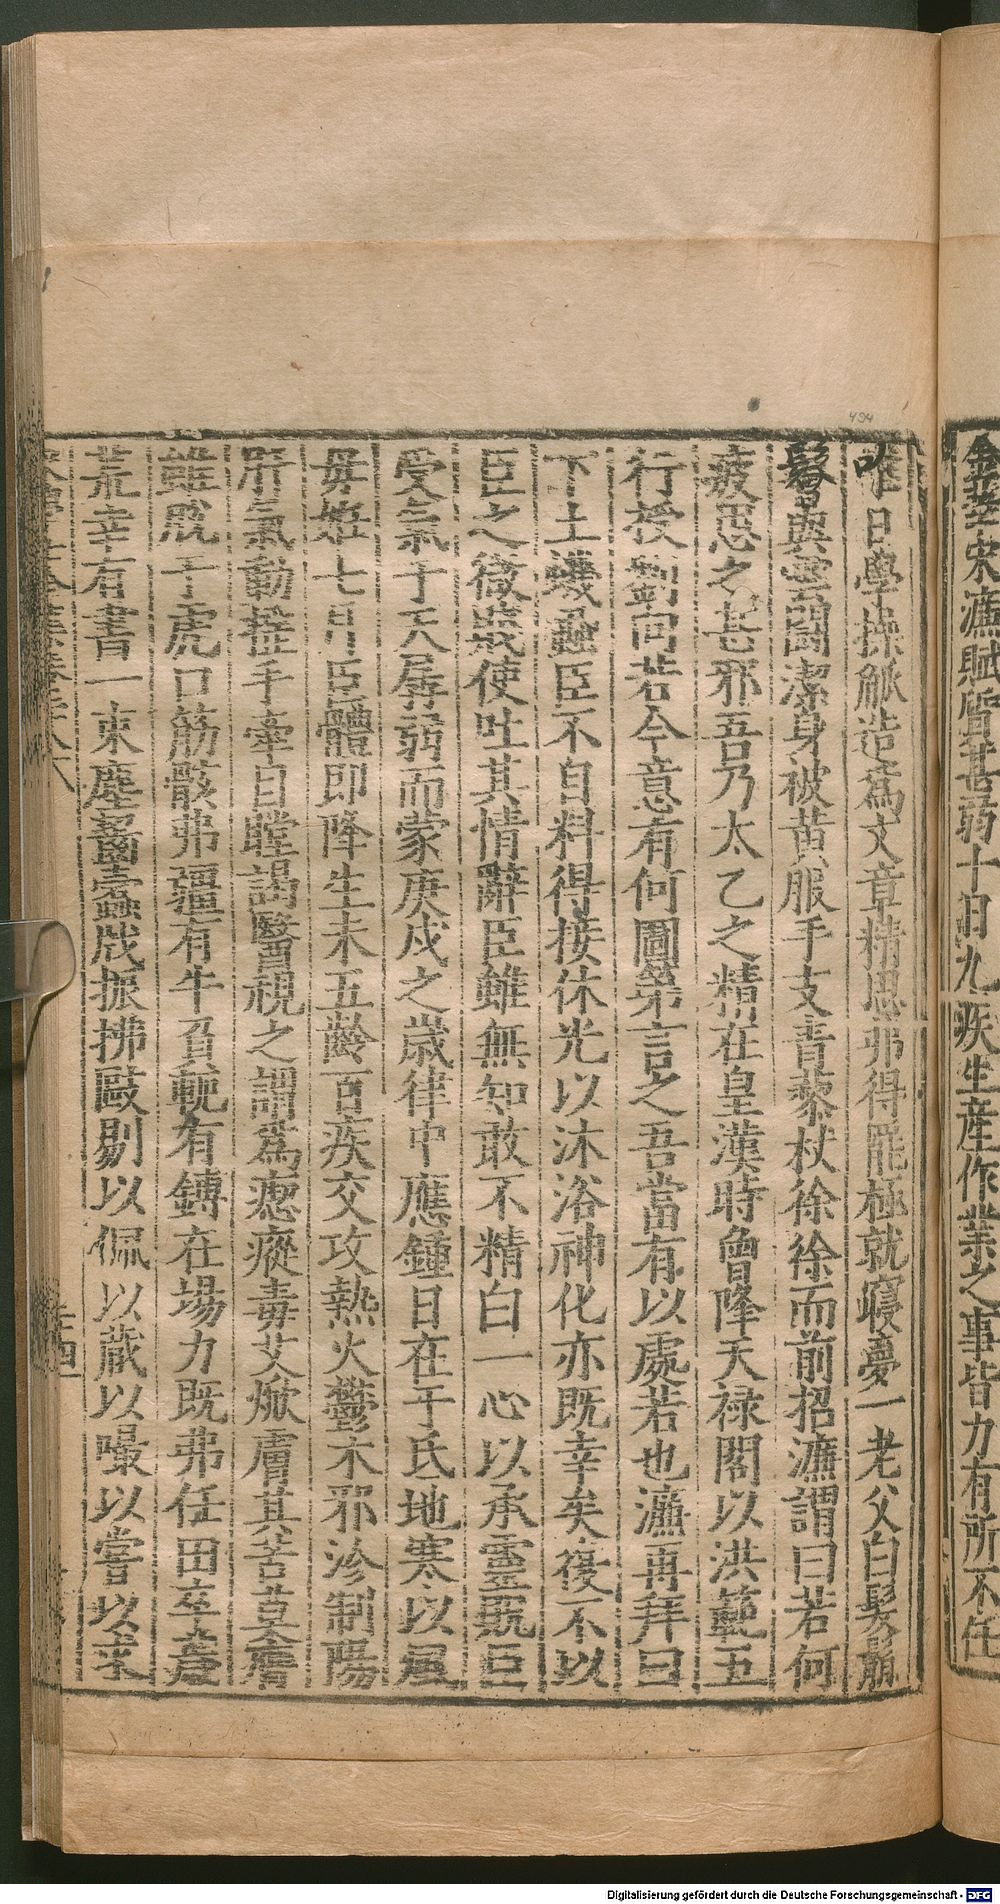 金華宋濂賦質甚弱十日九疾生産作業之事皆力有所不任
唯日學操觚造為文章精思弗得罷極就寢夢一老父白髮鬅
鬙與雲闘潔身被黃服手支青藜杖徐徐而前招濂謂曰若何
疲思之甚邪吾乃太乙之精在皇漢時曾降天禄閣以洪範五
行授劉向若今意有何圖第言之吾當有以處若也濂再拜曰
下土蟣蝨臣不自料得接休光以沐浴神化亦既幸矣復不以
臣之微賤使吐其情辭臣雖無知敢不精白一心以承靈貺臣
受氣于天孱弱而蒙庚戍之歲律中應鍾日在于氐地寒以風
毋姙七月臣體即降生未五齡百疾交攻熱火鬱木邪沴制陽
肝氣動搖手牽目瞠謁醫視之謂為瘛瘲毒艾焮膚其苦莫膺
雖脫于虎口筋骸弗彊有牛負軛有鎛在場力既弗任田卒蓋
荒幸有書一束塵蠹戕振拂毆剔以佩以蕆以嘬以嘗以求
494
Digitalisierung gefördert durch die Deutsche Forschungsgemeinschaft - DFG